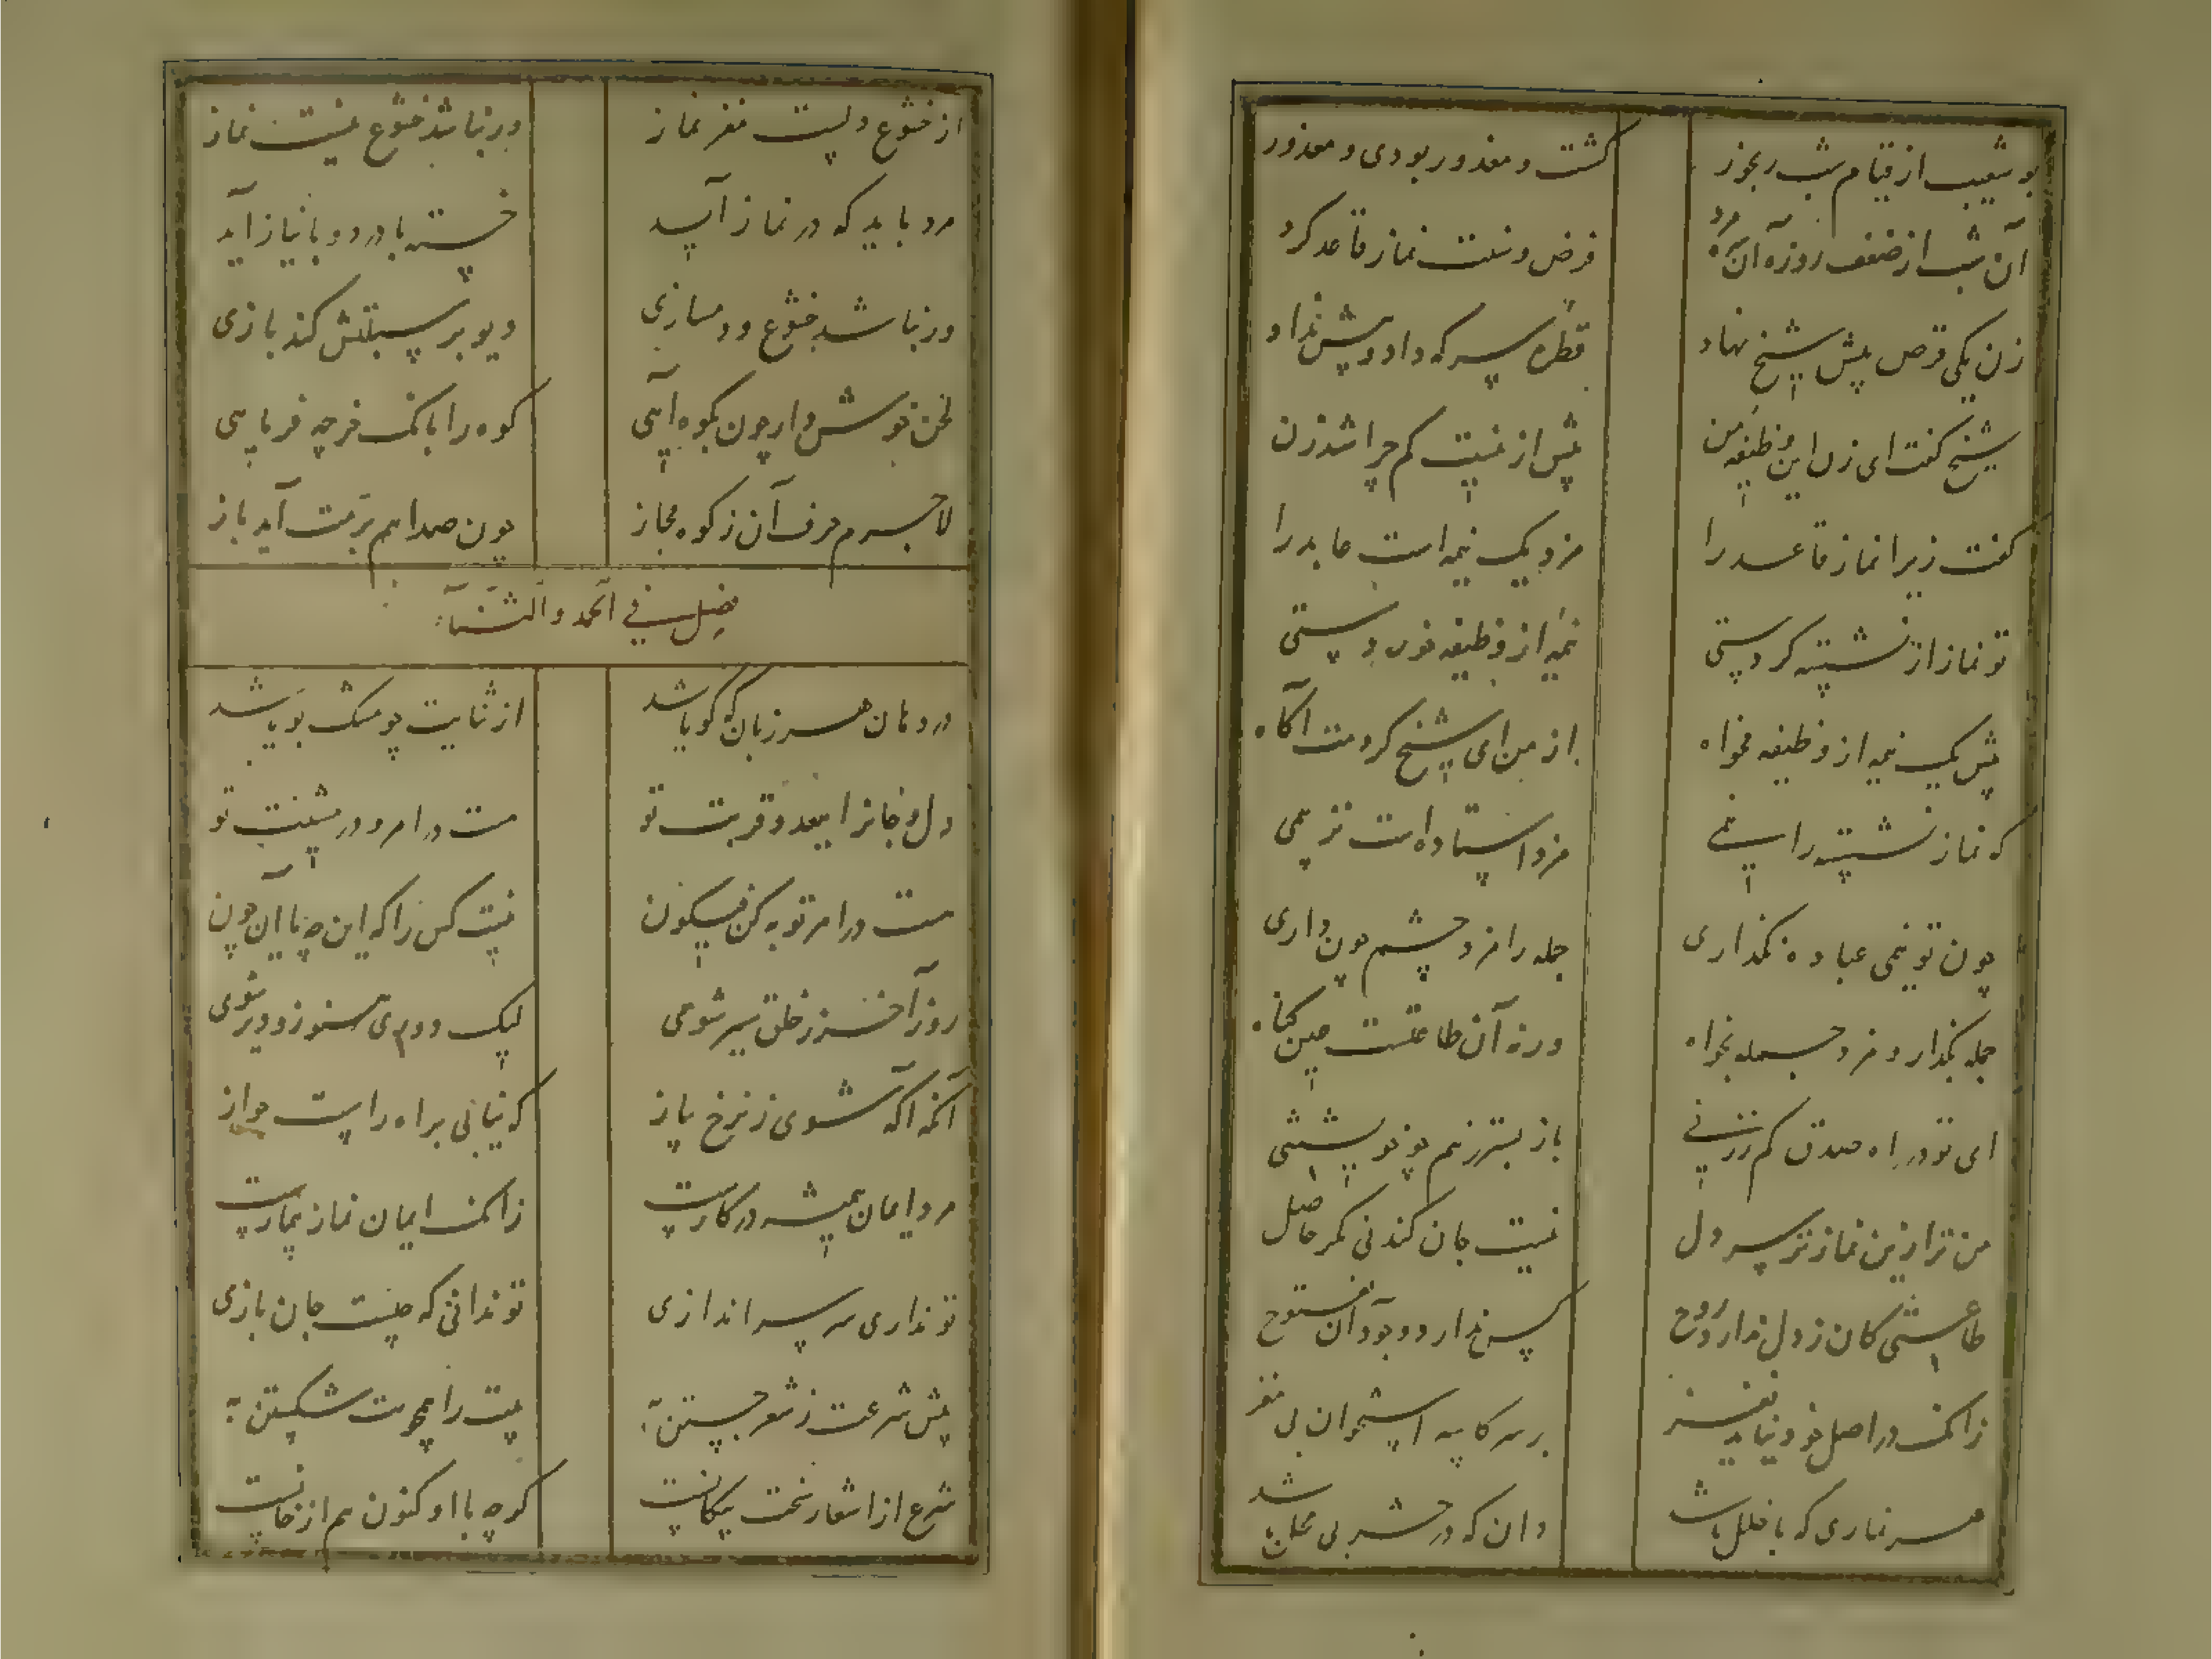 بو شعیب از قیام شب رنجور
گشت و معذور بودی و معذور
آن شب از ضعف روزه آن مرد
فرض و سنت نماز قاعد کرد
زن یکی قرص پیش شیخ نهاد
قطره سرکه داد و بیش نداد
شیخ گفت ای زن این وظیفه من
بیش ازینست کم چرا شد زن
گفت زیرا نماز قاعد را
مزد یک نیمه است عابد را
تو نماز از نشسته کردستی
نیمه از وظیفه خوردستی
بیش یک نیمه از وظیفه مخواه
از من ای شیخ کردمت آگاه
که نماز نشسته را نیمی
مزد استاده است نز پیمی
چون تو نیمی عباده نگذاری
جمله را مزد چشم چون داری
جمله بگذار و مزد جمله بخواه
ورنه آن طاعتست عین گناه
ای تو در راه صدق کم ززنی
باز بستر نیم چو خویشتنی
من ترا زین نماز نز سر دل
نیست جان کندنی مگر حاصل
طاعتی کان ز دل ندارد روح
کس ندارد وجود آن فتوح
زانک در اصل خود نیاید نغز
بر سر کاسه استخوان بی مغز
هر نمازی که با خلل باشد
دان که در حشر بی محل باشد
از خشوع دلست مغز نماز
ور نباشد خشوع نیست نماز
مرد باید که در نماز آید
خسته با درد و با نیاز آید
ور نباشد خشوع و دمسازی
دیو بر سبلتش کند بازی
لحن خوش دار چون بکوه آیی
کوه را بانگ خر چه فرمایی
لاجرم حرف آن ز کوه مجاز
چون صدا هم بزمت آید باز
فصل فی الحمد والثناء
در دهان هر زبان که گویا شد
از ثنایت چو مشک بویا شد
دل و جانرا ببعد و قربت تو
هست در امر و در مشیت تو
هست در امر تو به کن فیکون
نیست کس را که این چه یا آن چون
روز آخر ز خلق سیر شوی
لیک دوم ی هنوز زود دیر شوی
آنگه آگه شوی ز نرخ پیاز
که نیابی براه راست جواز
مرد ایمان همیشه در کارست
زانک ایمان نماز بیمارست
تو نداری سر سراندازی
تو ندانی که چیست جان بازی
پیش شرعت ز شعر جستن به
بیت را همچو بت شکستن به
شرع از اشعار سخت بیگانست
گرچه با او کنون هم از خانست